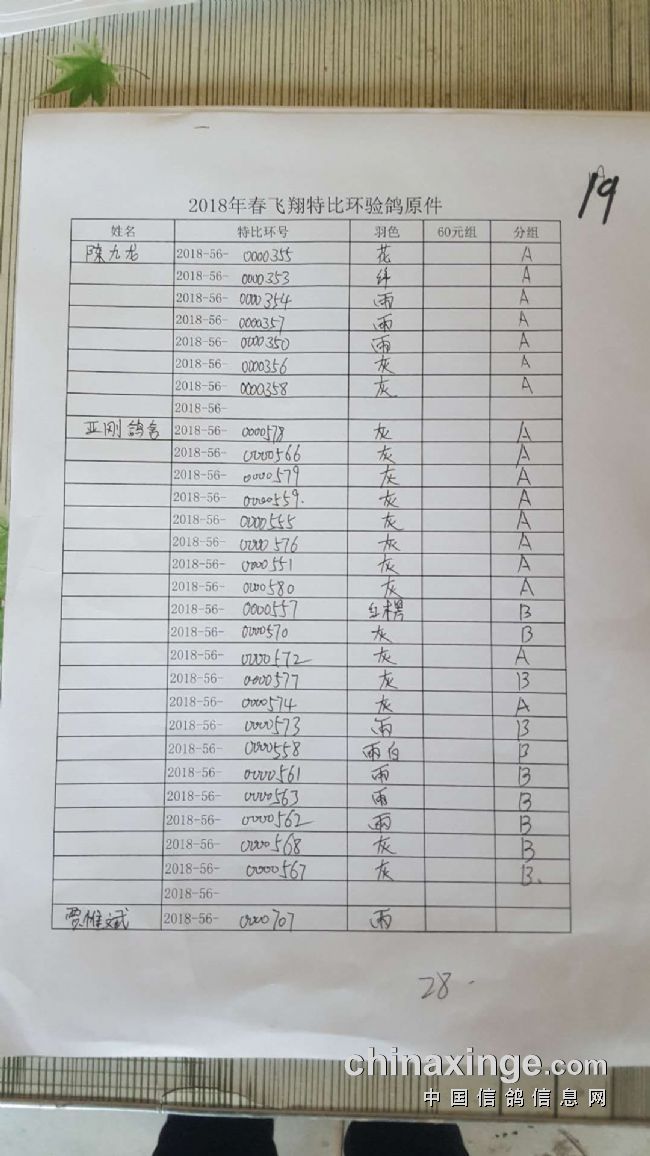 19
2018年春飞翔特比环验鸽原件
姓名 特比环号 羽色 60元组 分组
陈九龙 2018-56- 0000355 花 A
2018-56- 0000353 绛 A
2018-56- 0000354 雨 A
2018-56- 0000357 雨 A
2018-56- 0000350 雨 A
2018-56- 0000356 灰 A
2018-56- 0000358 灰 A
2018-56-
亚刚鸽舍 2018-56- 0000578 灰 A
2018-56- 0000566 灰 A
2018-56- 0000579 灰 A
2018-56- 0000559. 灰 A
2018-56- 0000555 灰 A
2018-56- 0000576 灰 A
2018-56- 0000551 灰 A
2018-56- 0000580 灰 A
2018-56- 0000557 红楞 B
2018-56- 0000570 灰 B
2018-56- 0000572 灰 A
2018-56- 0000577 灰 B
2018-56- 0000574 灰 A
2018-56- 0000573 雨 B
2018-56- 0000558 雨白 B
2018-56- 0000561 雨 B
2018-56- 0000563 雨 B
2018-56- 0000562 雨 B
2018-56- 0000568 灰 B
2018-56- 0000567 灰 B.
2018-56-
贾惟斌 2018-56- 0000707 雨
28.
chinaxinge.com
中国信鸽信息网